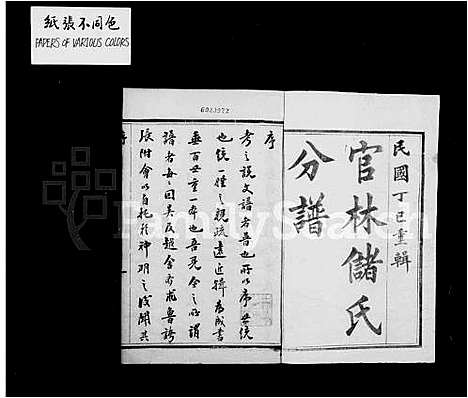 紙張不同色
PAPERS OF VARIOUS COLORS
6023972
民國丁巳重輯
官林儲氏
分譜
序
考之說文譜者普也所以序世統
也統一種之親疏遠近輯為成書
垂百世重一本也吾見今之所謂
譜者每每因吳反越舍布求魯誇
張附會以自托於神明之後聞其
FamilySearch